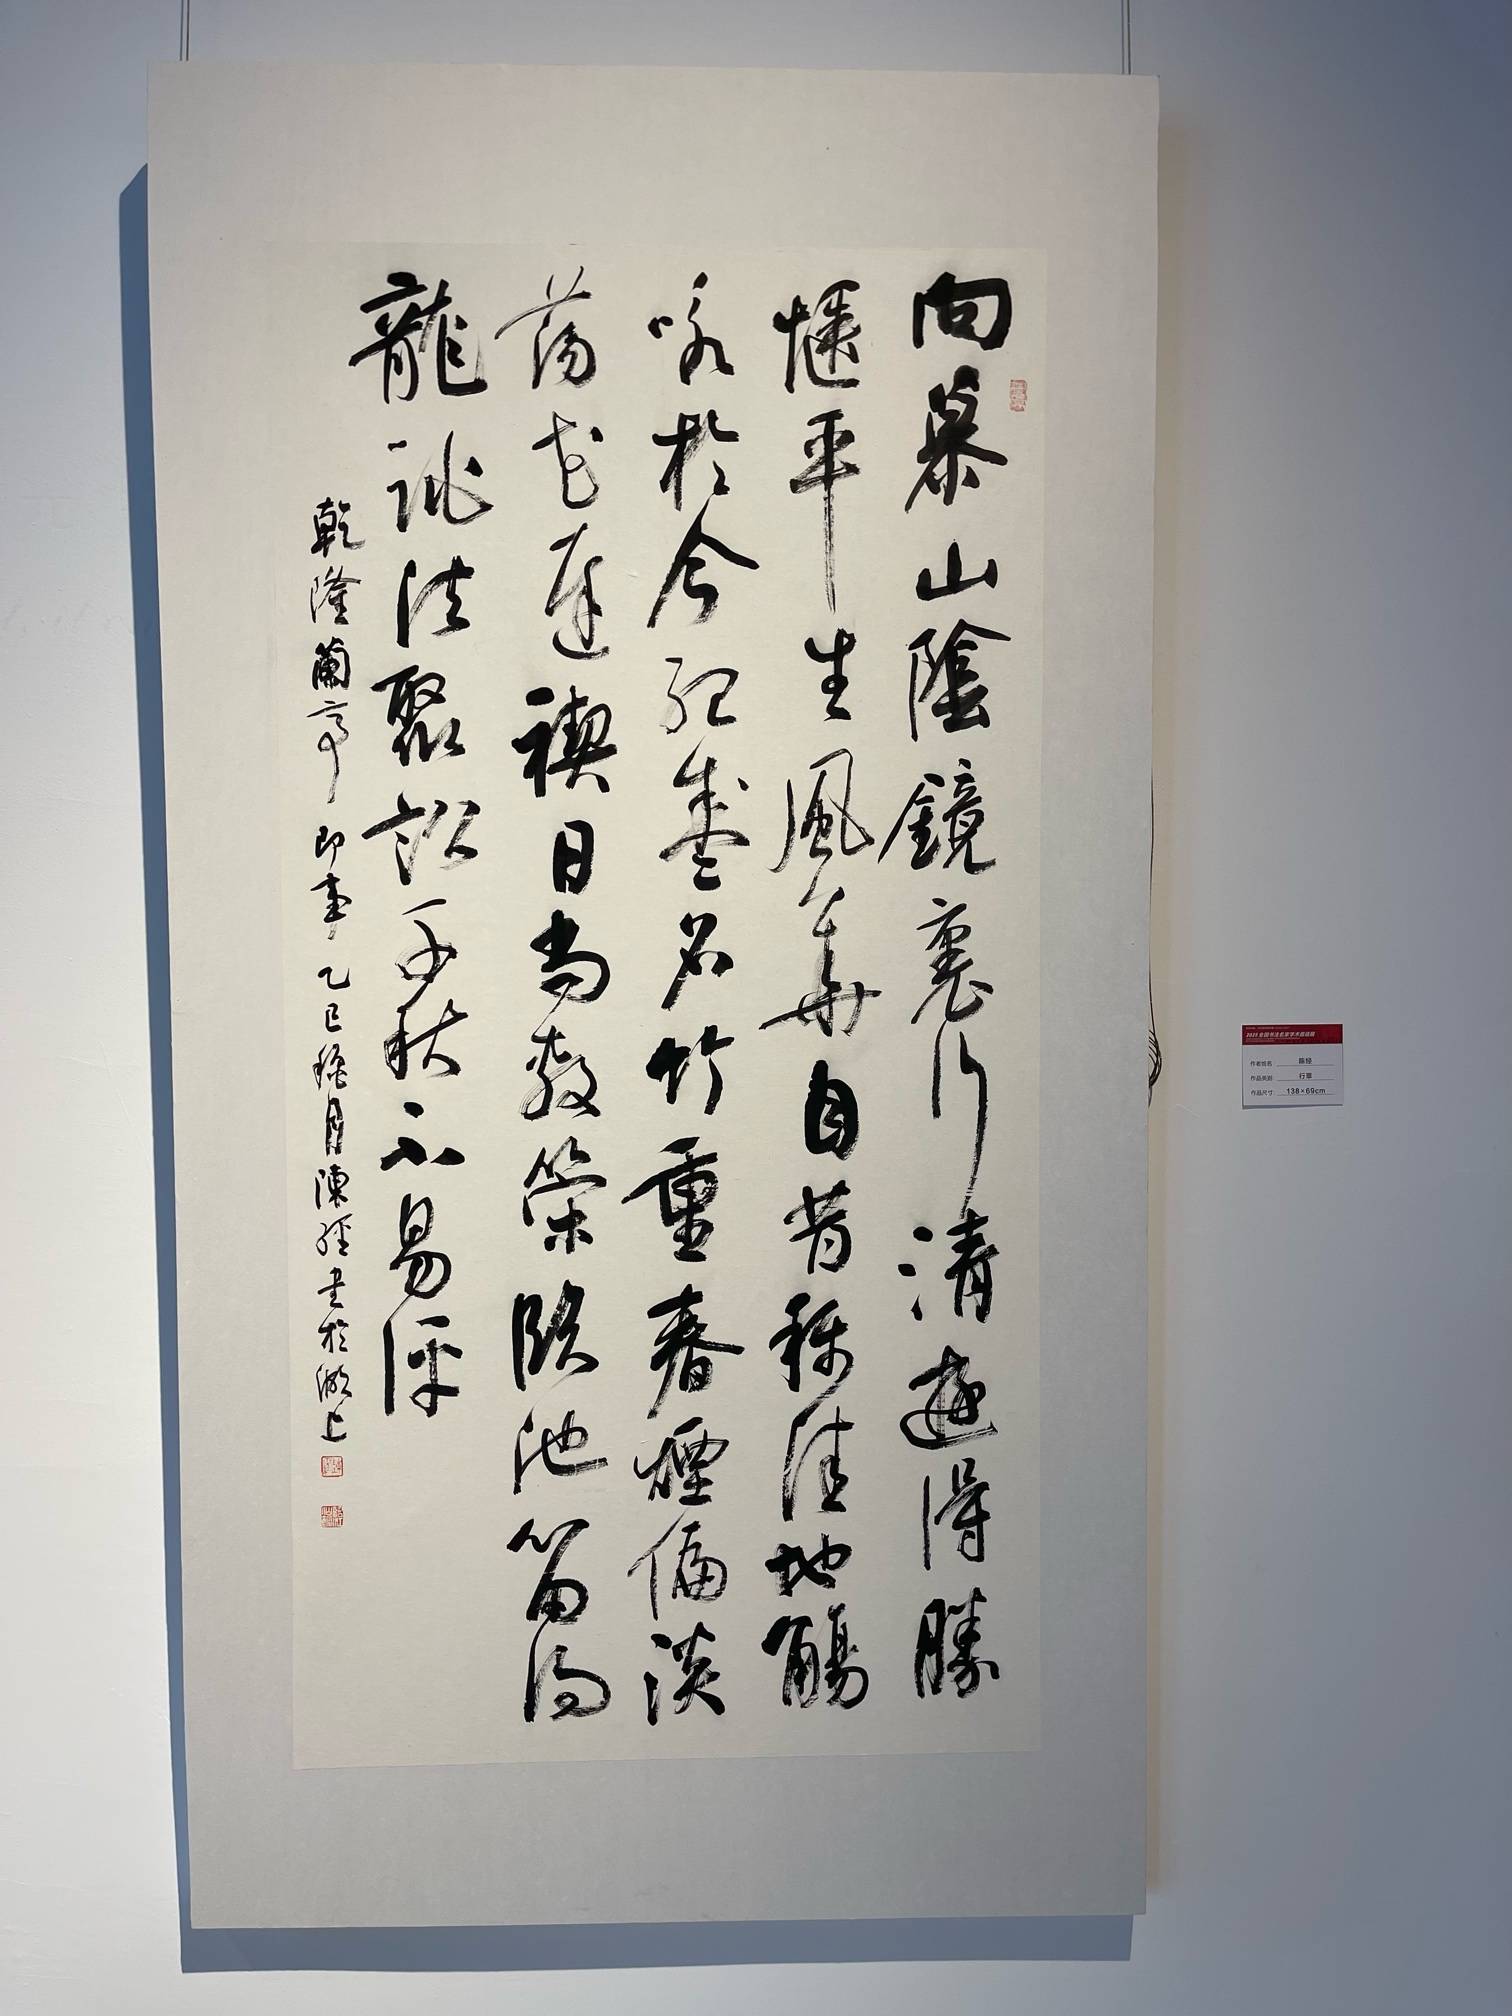 向慕山陰鏡裏行清遊得勝
愜平生風華自昔稱佳地觴
咏於今紀盛名竹重春煙偏淡
蕩花遲禊日尚敷榮臨池留得
龍跳法聚訟千秋不易評
乾隆蘭亭即事 乙巳穐月陳經書於湖上
2025全国书法名家学术邀请展
作者姓名 陈经
作品类别 行草
作品尺寸: 138×69cm